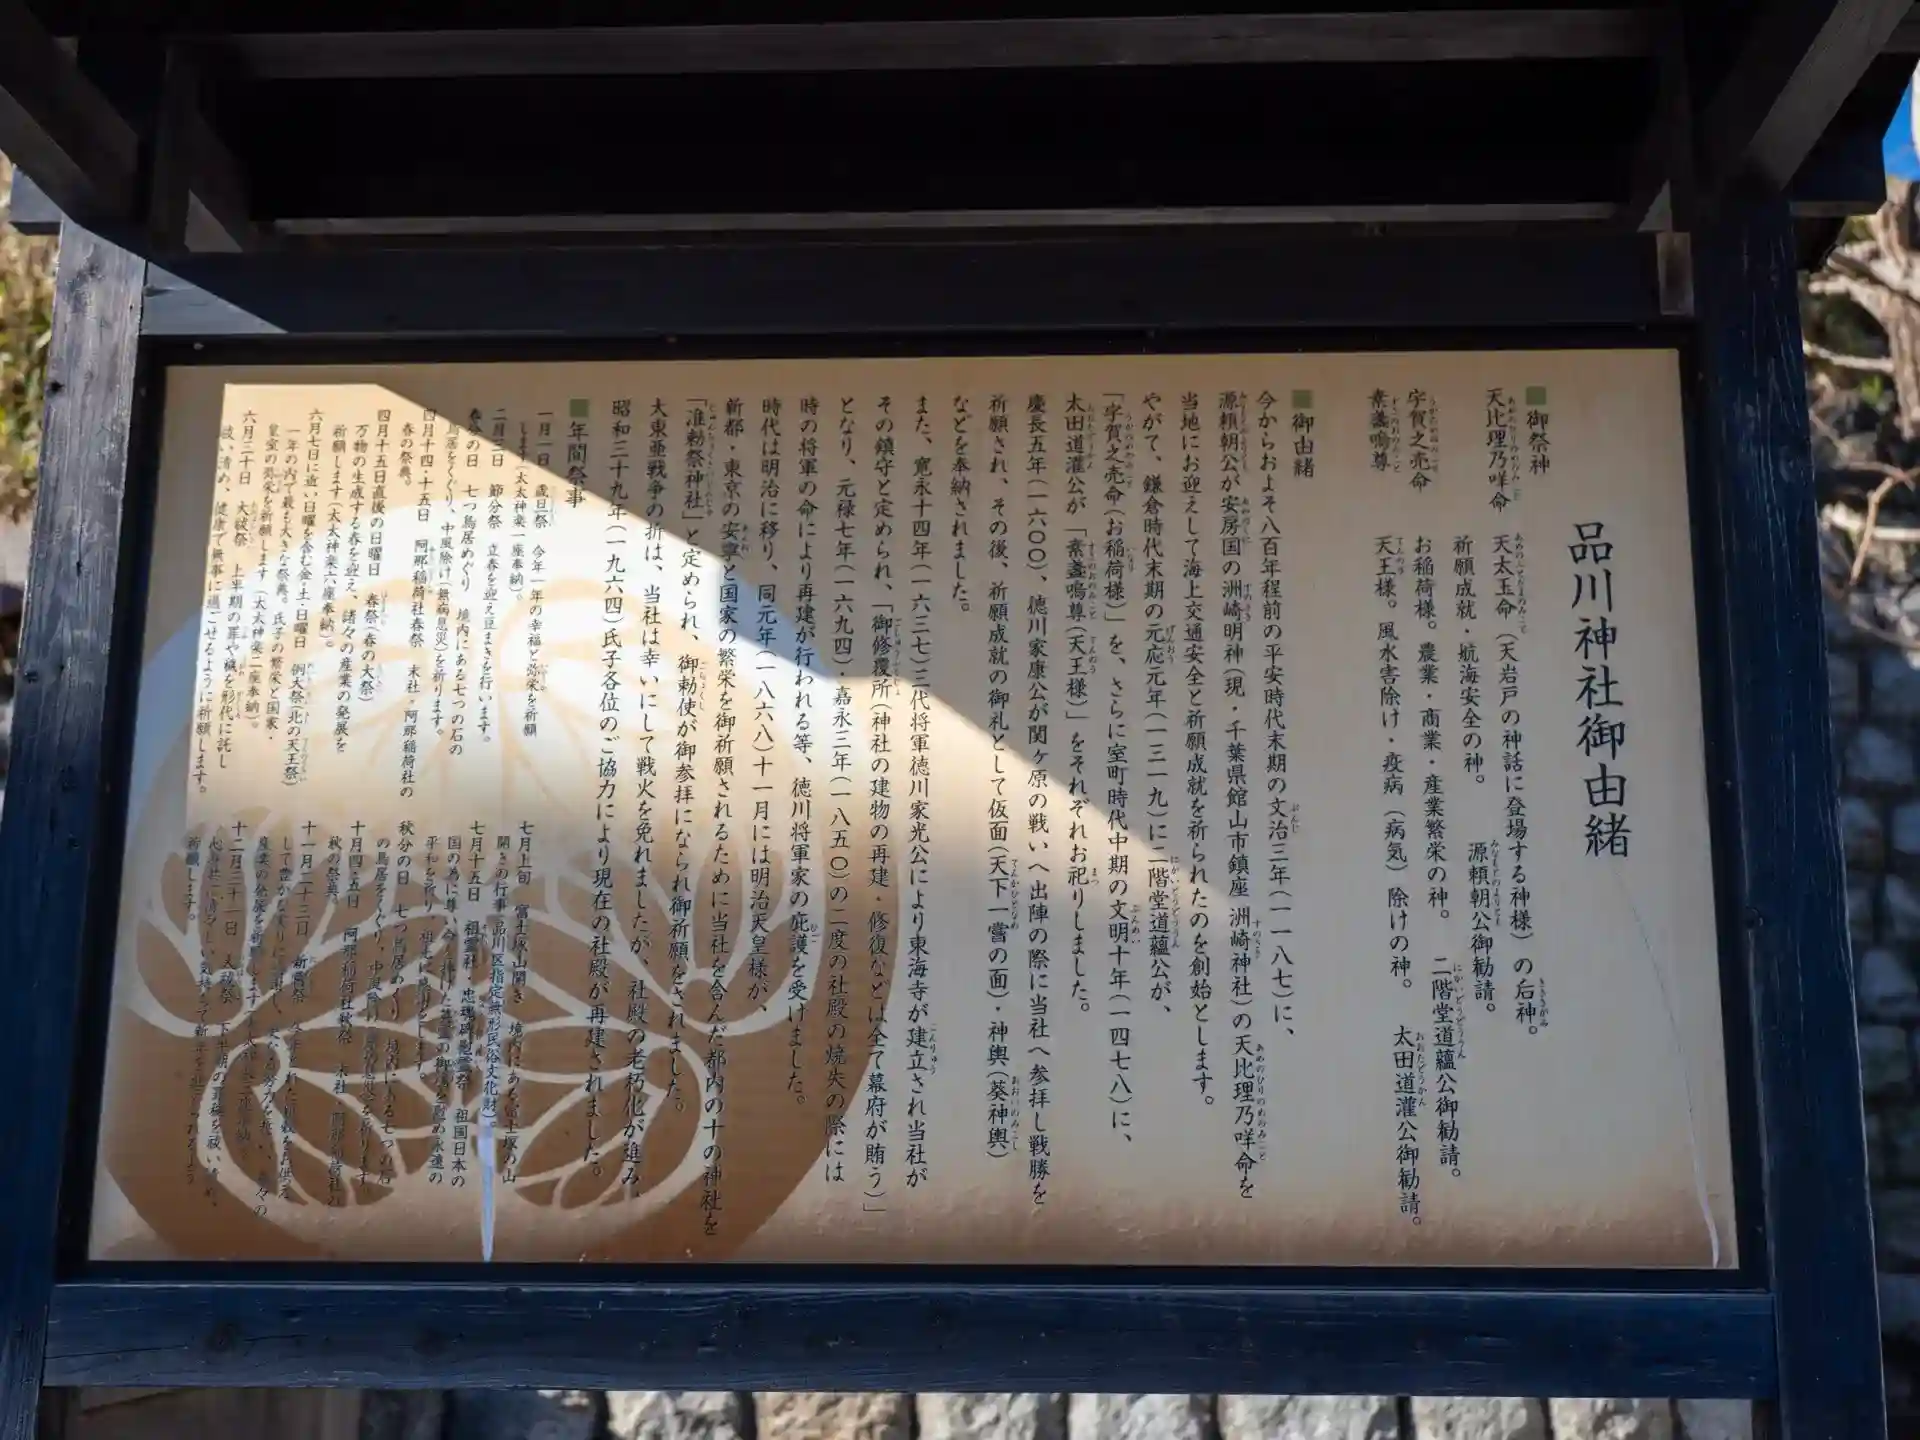 品川神社御由緒
■御祭神
天比理乃咩命 天太玉命(天岩戸の神話に登場する神様)の后神。
祈願成就・航海安全の神。 源頼朝公御勧請。
宇賀之売命 お稲荷様。農業・商業・産業繁栄の神。 二階堂道蘊公御勧請。
素盞嗚尊 天王様。風水害除け・疫病(病気)除けの神。 太田道灌公御勧請。
■御由緒
今からおよそ八百年程前の平安時代末期の文治三年(一一八七)に、
源頼朝公が安房国の洲崎明神(現・千葉県館山市鎮座 洲崎神社)の天比理乃咩命を
当地にお迎えして海上交通安全と祈願成就を祈られたのを創始とします。
やがて、鎌倉時代末期の元応元年(一三一九)に二階堂道蘊公が、
「宇賀之売命(お稲荷様)」を、さらに室町時代中期の文明十年(一四七八)に、
太田道灌公が「素盞嗚尊(天王様)」をそれぞれお祀りしました。
慶長五年(一六〇〇)、徳川家康公が関ヶ原の戦いへ出陣の際に当社へ参拝し戦勝を
祈願され、その後、祈願成就の御礼として仮面(天下一嘗の面)・神輿(葵神輿)
などを奉納されました。
また、寛永十四年(一六三七)三代将軍徳川家光公により東海寺が建立され当社が
その鎮守と定められ、「御修覆所(神社の建物の再建・修復などは全て幕府が賄う)」
となり、元禄七年(一六九四)・嘉永三年(一八五〇)の二度の社殿の焼失の際には
時の将軍の命により再建が行われる等、徳川将軍家の庇護を受けました。
時代は明治に移り、同元年(一八六八)十一月には明治天皇様が、
新都・東京の安寧と国家の繁栄を御祈願されるために当社を含んだ都内の十の神社を
「准勅祭神社」と定められ、御勅使が御参拝になられ御祈願をされました。
大東亜戦争の折は、当社は幸いにして戦火を免れましたが、社殿の老朽化が進み、
昭和三十九年(一九六四)氏子各位のご協力により現在の社殿が再建されました。
■年間祭事
一月一日 歳旦祭 今年一年の幸福と弥栄を祈願
します(太太神楽一座奉納)。
二月三日 節分祭 立春を迎え豆まきを行います。
春分の日 七つ鳥居めぐり 境内にある七つの石の
鳥居をくぐり、中風除け(無病息災)を祈ります。
四月十四・十五日 阿那稲荷社春祭 末社・阿那稲荷社の
春の祭典。
四月十五日直後の日曜日 春祭(春の大祭)
万物の生成する春を迎え、諸々の産業の発展を
祈願します(太太神楽六座奉納)。
六月七日に近い日曜を含む金・土・日曜日 例大祭(北の天王祭)
一年の内で最も大きな祭典。氏子の繁栄と国家・
皇室の弥栄を祈願します(太太神楽二座奉納)。
六月三十日 大祓祭 上半期の罪や穢を形代に託し
祓い清め、健康で無事に過ごせるように祈願します。
七月上旬 富士塚山開き 境内にある富士塚の山
開きの行事(品川区指定無形民俗文化財)。
七月十五日 祖霊社・忠魂碑慰霊祭 祖国日本の
国の為に尊い命を捧げた英霊の御霊を慰め永遠の
平和を祈り、祖先に感謝をします。
秋分の日 七つ鳥居めぐり 境内にある七つの石
の鳥居をくぐり、中風除け(無病息災)を祈ります。
十月四・五日 阿那稲荷社秋祭 末社・阿那稲荷社の
秋の祭典。
十一月二十三日 新嘗祭
産業の発展を祈願します
十二月三十一日 大祓祭 下半期の罪穢を祓い清め、
祈願します。